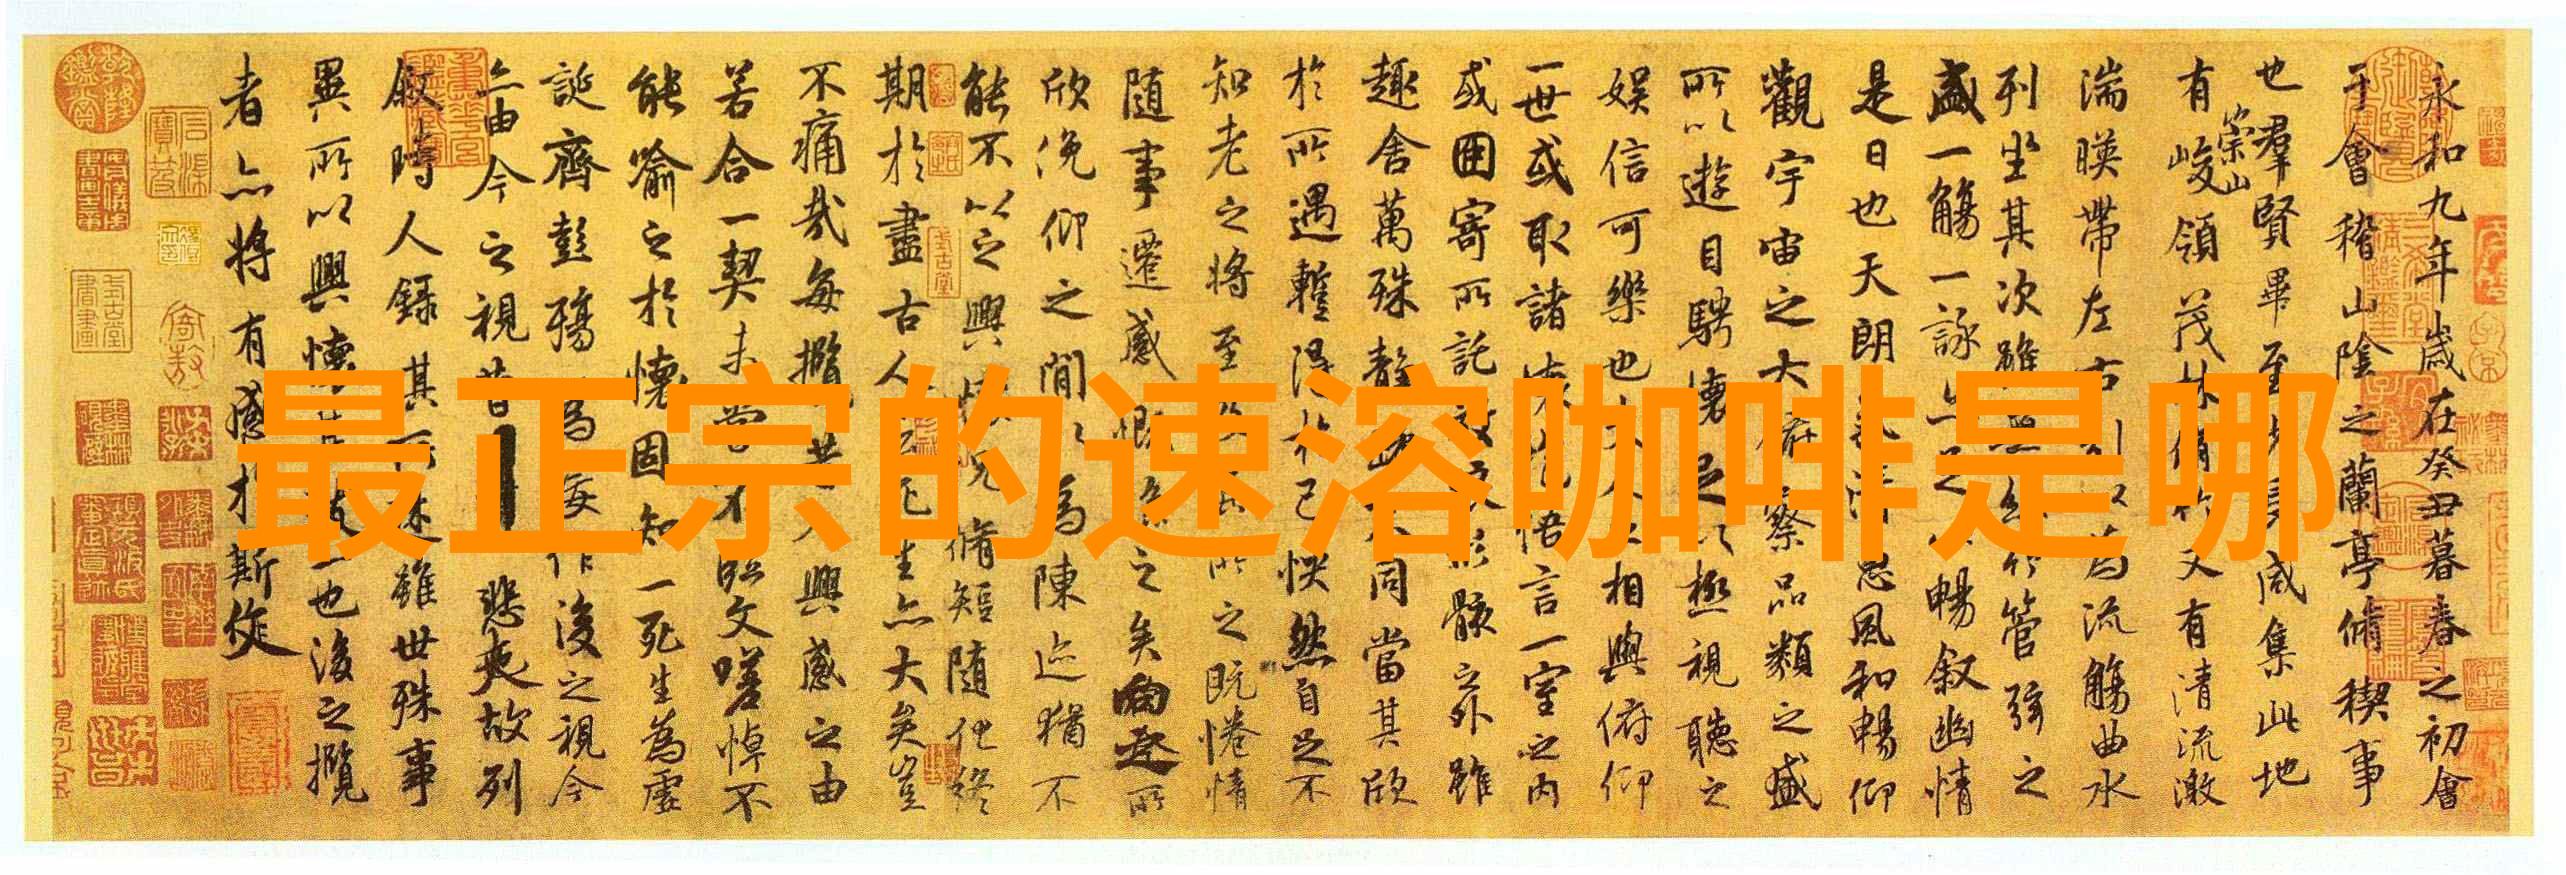 永和九年歲在癸丑暮春之初會
于會稽山陰之蘭亭脩稧事
也群賢畢至少長咸集此地
有崇山峻領茂林脩竹又有清流激
湍暎帶左右引以為流觴曲水
列坐其次雖無絲竹管弦之
盛一觴一詠亦足以暢敘幽情
是日也天朗氣清惠風和暢仰
觀宇宙之大俯察品類之盛
所以遊目騁懷足以極視聽之
娛信可樂也夫人之相與俯仰
一世或取諸懷抱悟言一室之內
或因寄所託放浪形骸之外雖
趣舍萬殊靜躁不同當其欣
於所遇暫得於己怏然自足不
知老之將至及其所之既惓情
隨事遷感慨係之矣向之所
欣俛仰之間以為陳迹猶不
能不以之興懷況脩短隨化終
期於盡古人云死生亦大矣豈
不痛哉每攬昔人興感之由
若合一契未嘗不臨文嗟悼不
能喻之於懷固知一死生為虛
誕齊彭殤為妄作後之視今
亦由今之視昔悲夫故列
敘時人錄其所述雖世殊事
異所以興懷其致一也後之攬
者亦將有感於斯文
最正宗的速溶咖啡是哪